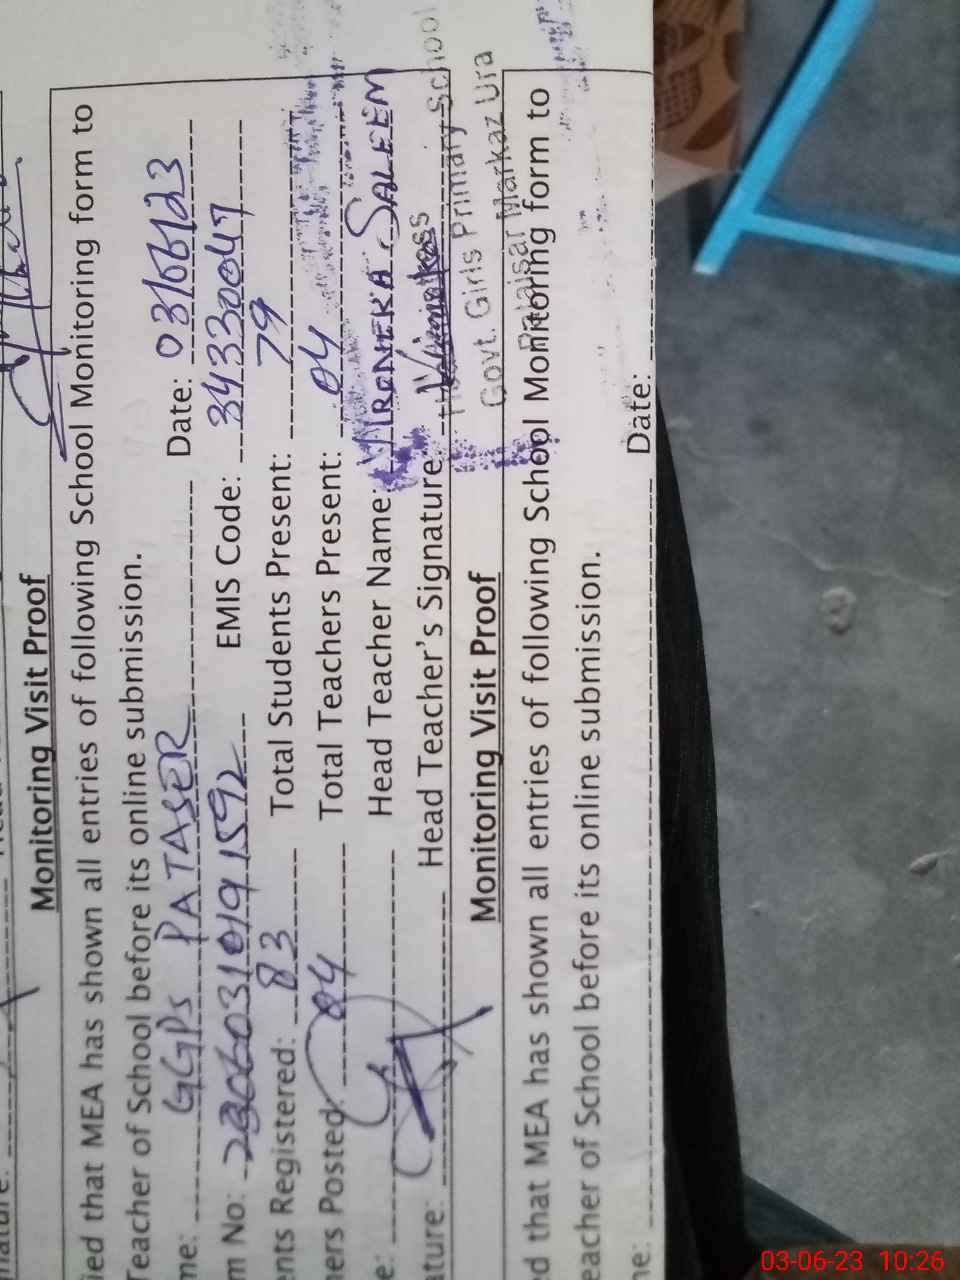 Monitoring Visit Proof
ied that MEA has shown all entries of following School Monitoring form to
Teacher of School before its online submission.
me: GGPS PATASER Date: 03/06/23
m No: 2306031019 1592 EMIS Code: 34330047
ents Registered: 83 Total Students Present: 79
hers Posted: 04 Total Teachers Present: 04
e: Head Teacher Name: VIRONEKA SALEEM
ature: Head Teacher's Signature:
Govt. Girls Primary School
Pataisar Markaz Ura
Monitoring Visit Proof
ed that MEA has shown all entries of following School Monitoring form to
eacher of School before its online submission.
ne: Date:
03-06-23 10:26